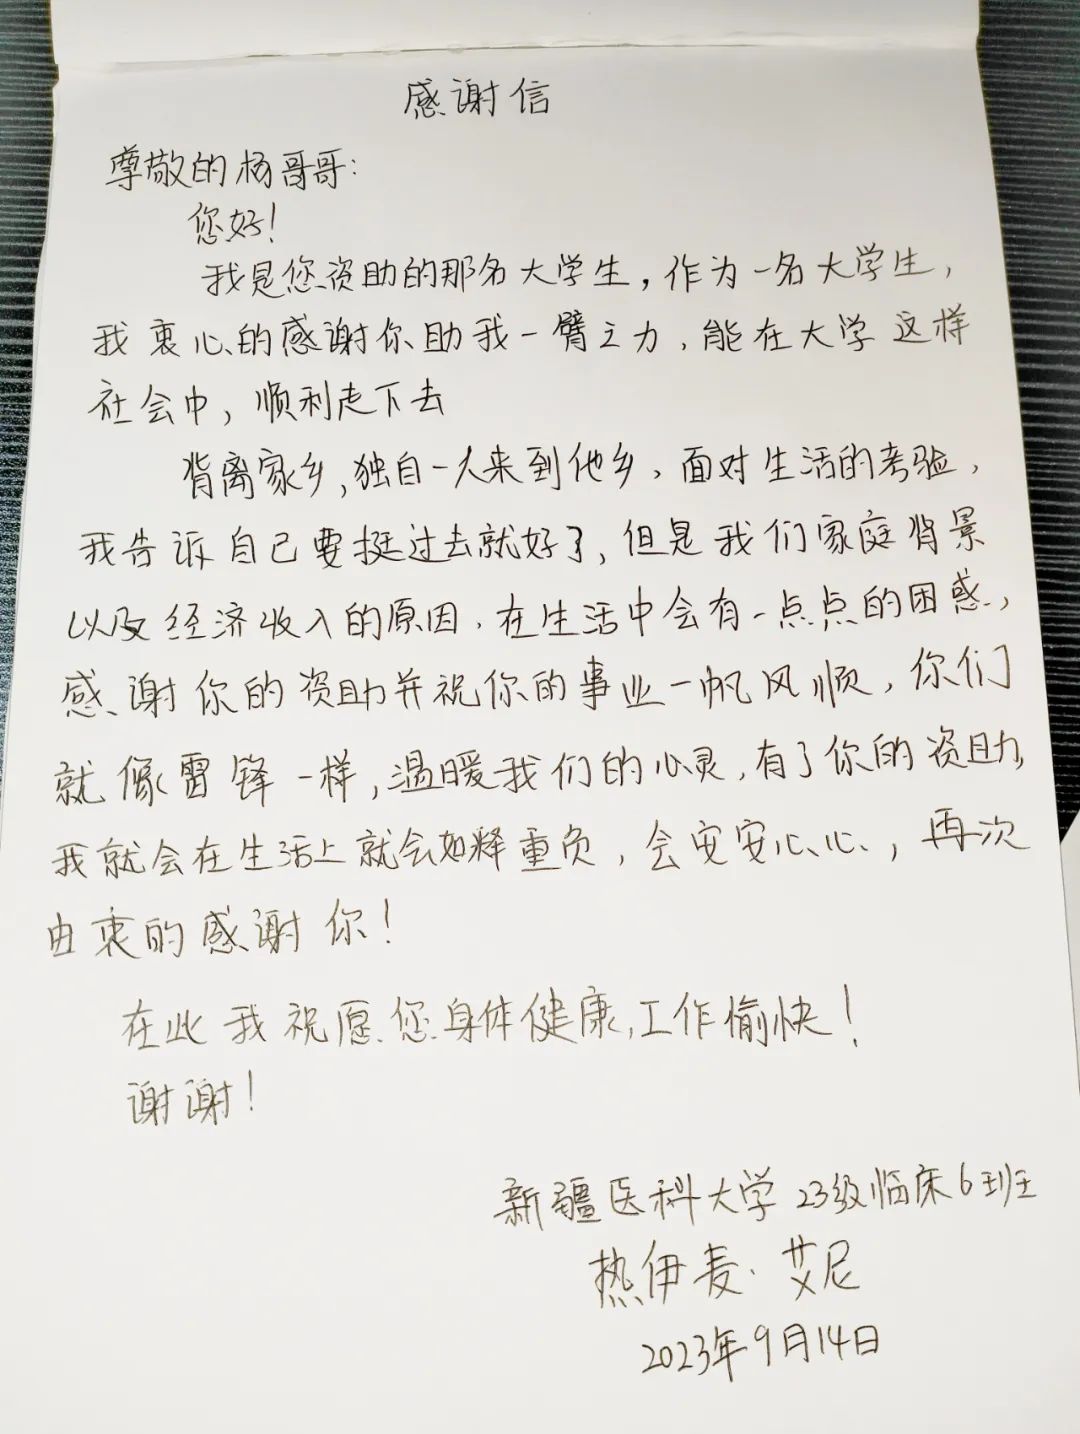 感谢信
尊敬的杨哥哥:
您好!
我是您资助的那名大学生,作为一名大学生,
我衷心的感谢你助我一臂之力,能在大学这样
社会中,顺利走下去
背离家乡,独自一人来到他乡、面对生活的考验,
我告诉自己要挺过去就好了,但是我们家庭背景
以及经济收入的原因,在生活中会有一点点的困惑,
感谢你的资助并祝你的事业一帆风顺,你们
就像雷锋一样,温暖我们的心灵,有了你的资助,
我就会在生活上就会如释重负,会安安心心,再次
由衷的感谢你!
在此我祝愿您身体健康,工作愉快!
谢谢!
新疆医科大学23级临床6班
热伊麦·艾尼
2023年9月14日